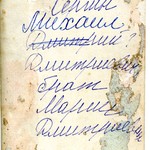 Михаил
Дмитрий?
Дмитриевич
брат
Марии
Дмитриевны